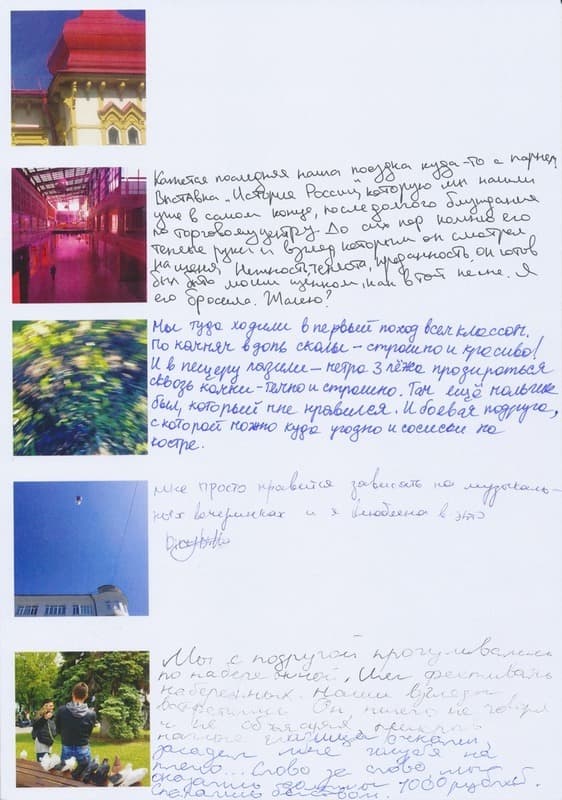 Кажется последняя наша поездка куда-то с парнем.
Выставка „История России", которую мы нашли
уже в самом конце, после долгого блуждания
по торговому центру. До сих пор помню его
теплые руки и взгляд которым он смотрел
на меня. Нежность, теплота, преданность, он готов
был стать моим щенком, как в той песне. Я
его бросила. Жалею?
Мы туда ходили в первый поход всем классом.
По камням вдоль скалы – страшно и красиво!
И в пещеру лазили – метра 3 лёжа продираться
сквозь камни – темно и страшно. Там ещё мальчик
был, который мне нравился. И боевая подруга,
с которой можно куда угодно и сосиски на
костре.
мне просто нравится зависать на музыкаль-
ных вечеринках и я влюблена в это
Мы с подругой прогуливались
по набережной, Шел фестиваль
набережных. Наши взгляды
встретились Он ничего не говоря
и не объясняя,
наглые
посадил мне голубя на
плечо... Слово за слово мы
оказались должны 1000 рублей.